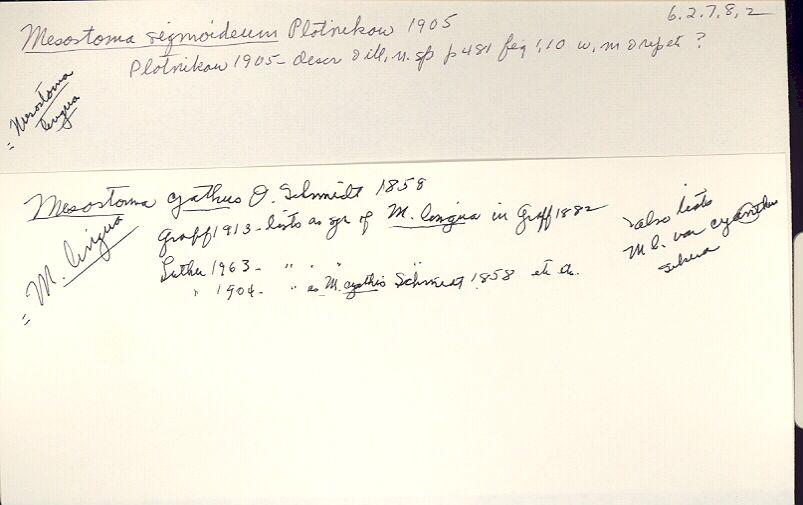 6.2.7.8.2
Mesostoma sigmoideum Plotnikow 1905
Plotnikow 1905 - descr & ill, n. sp p 481 fig 1,10 w, m & rep et ?
= Mesostoma
lingua
Mesostoma cyathus O. Schmidt 1858
Graff 1913 - lists as syn of M. lingua in Graff 1882
Luther 1963 - " " " "
" 1904 - " as M. cyathus Schmidt 1858
= M. lingua
also lists
M. l. var